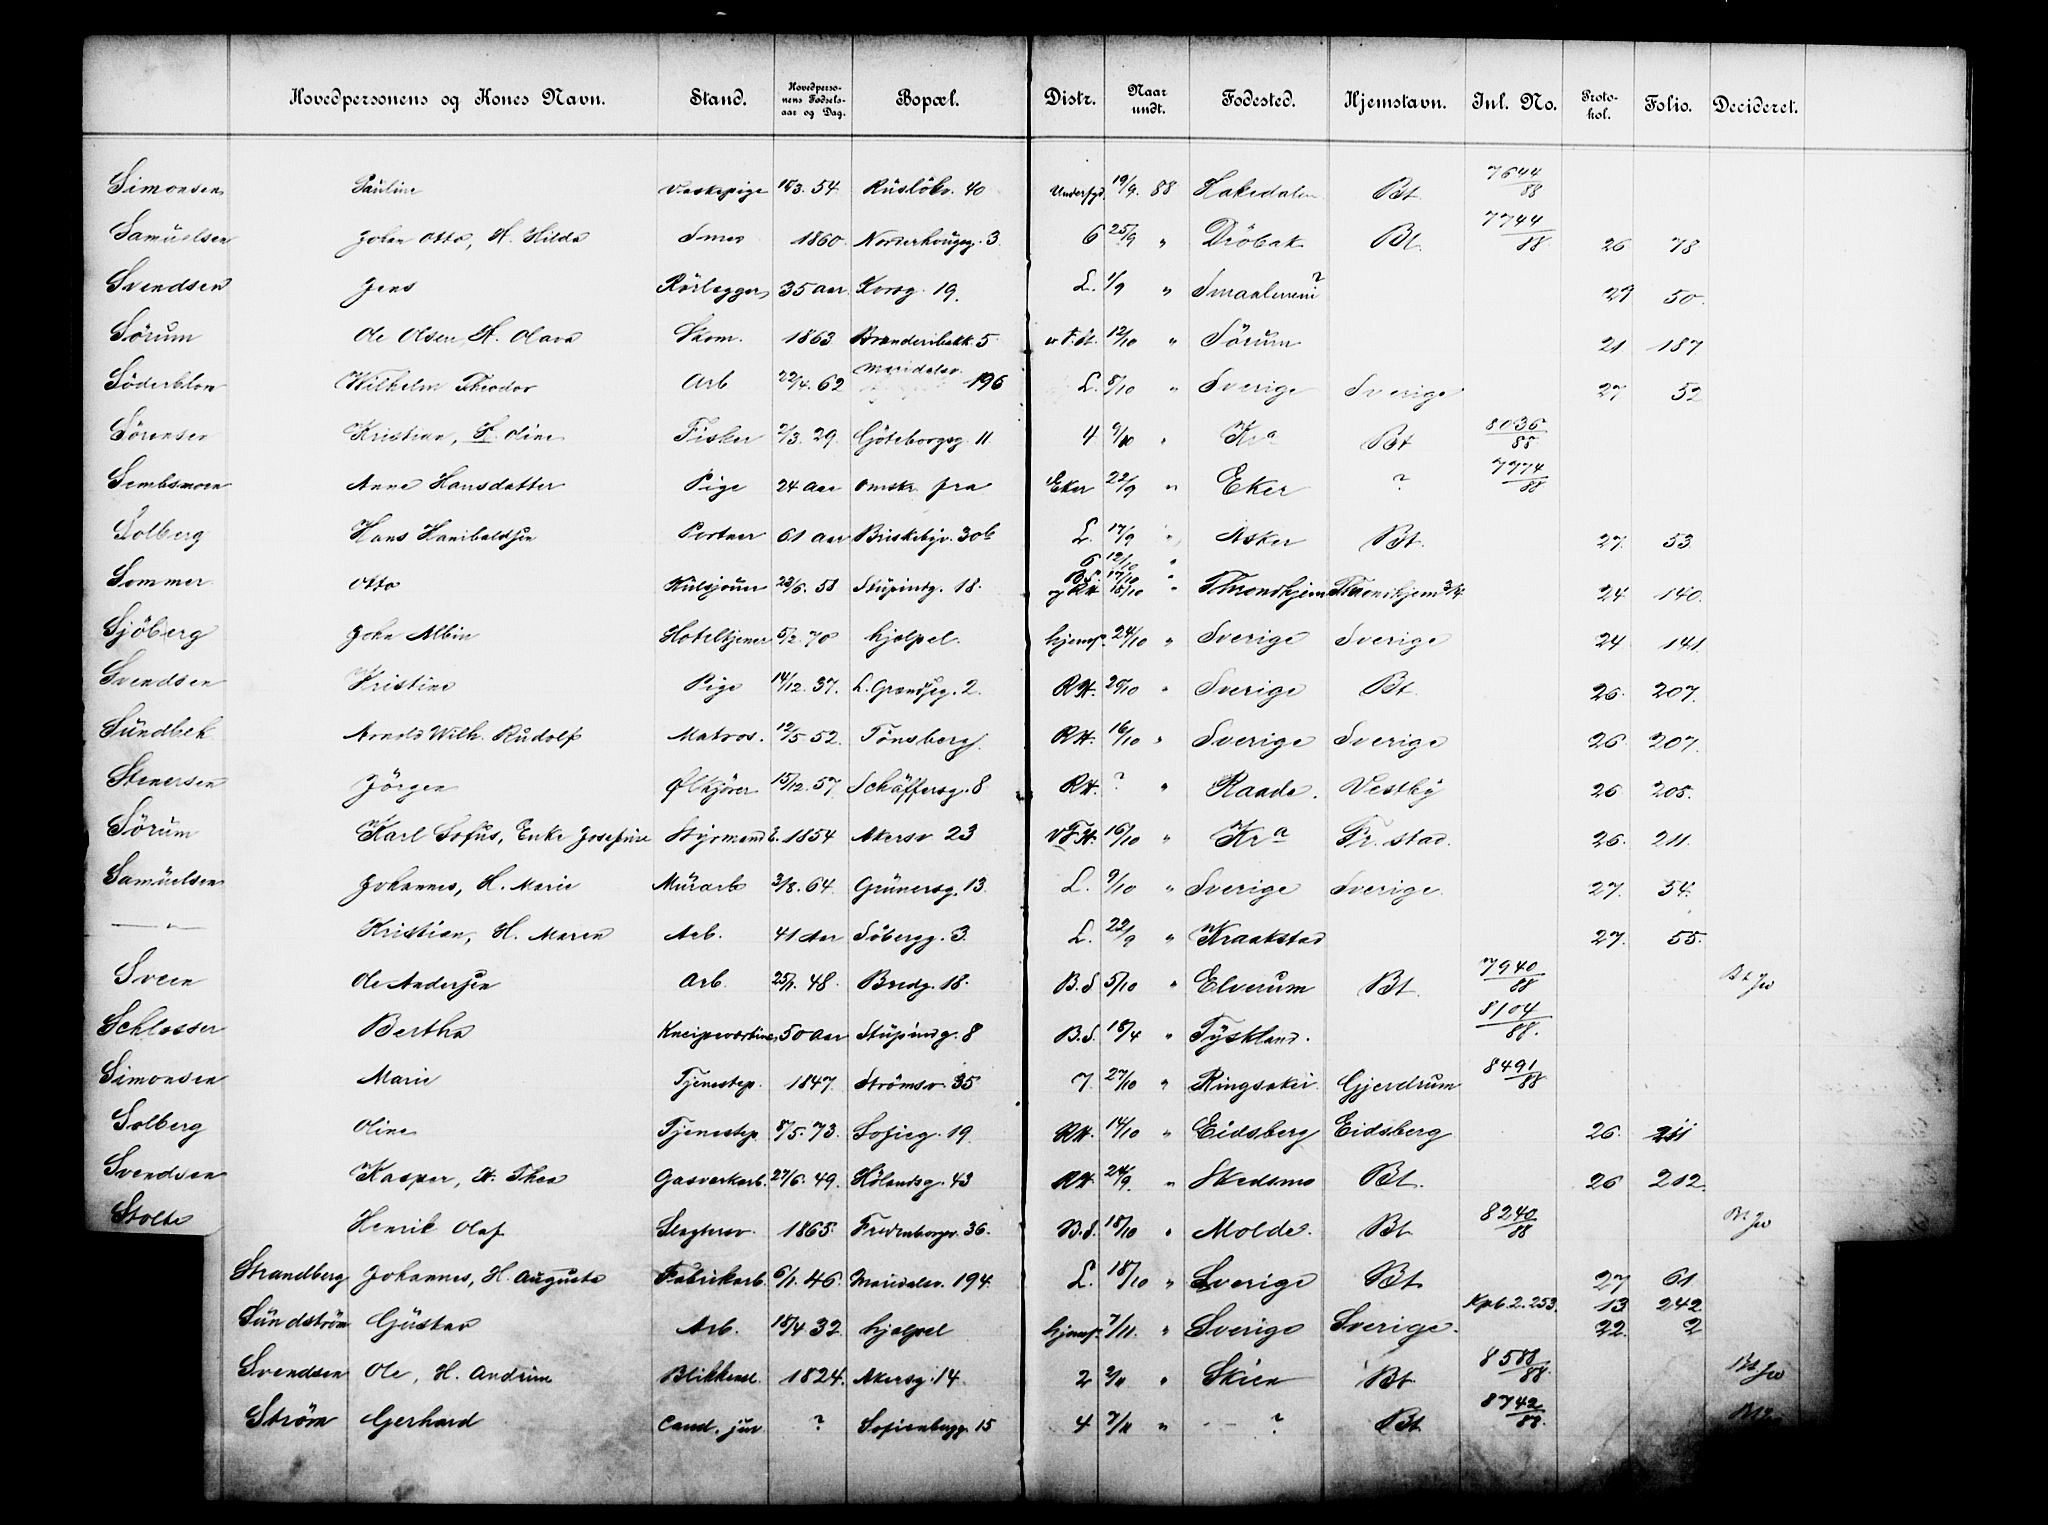 Hovedpersonens og Kones Navn. Stand. Hovedpersonens Fødselsaar og Dag. Bopæl. Distr. Naar undt. Fødested. Hjemstavn. Inl. No. Protokol. Folio. Decideret.
Simonsen Pauline Vaskepige 3. 54. Rusløkv. 40 19/9. 88 Hakedalen Bt. 7644/88
Samuelsen Johan Otto, H. Hilda Smed 1860. Norderhougsg. 3. 6 25/9 " Drøbak Bt. 7744/88 26 78
Svendsen Jens Rørlegger, 35 aar. Korsg. 19. L. 1/9 " Smaalenene? 29 50.
Sörum Ole Olsen, H. Olava Skom. 1863 5 12/10 " Sörum 21 187
Söderblom Wilhelm Theodor Arb 22/4. 62 Maridalsv. 196 L. 8/10 " Sverige Sverige 27 52
Sörensen Kristian, H. Oline Fisker 2/3. 29. Göteborgsg. 11 4 9/10 " Kra Bt 8036/88
Sembsmoen Anne Hansdatter Pige 24 aar omstr. fra Eker 22/9 " Eker ? 7774/88
Solberg Hans Hanibaldsen Portner 61 aar Briskebyv. 30b L. 17/9 " Asker Bt. 27. 53
Sommer Otto Kulsjouer 23/6. 58 Stupindg. 18. 6 12/10 " B.S. 17/10 " og RH 18/10 Throndhjem Throndhjem 24 140.
Sjöberg John Albin Hoteltjener 5/2. 70 hjelpel. hjemf. 24/10 " Sverige Sverige 24. 141.
Svendsen Kristine Pige 14/12. 37. L. Grændseg. 2. RH. 20/10 " Sverige Bt. 26. 207.
Sündbek Arnold Wilh. Rudolf Matros. 12/5 52. Tönsberg RH. 16/10 " Sverige Sverige 26. 207.
Stenersen Jörgen Ølkjører 15/12. 57. Schäffersg. 8 RH. ? " Raade. Vestby 26 205.
Sörum Karl Sofus, Enke Josefine Styrmand 1854 Akersv. 23 vFH. 16/10 " Kra Fr. stad. 26. 211.
Samuelsen Johannes, H. Marie Murarb 3/8. 64. Grünersg. 13. L. 9/10 " Sverige Sverige. 27. 54.
—"— Kristian, H. Maren Arb. 41 aar Söbergg. 3. L. 22/9 " Kraakstad 27. 55.
Sveen Ole Andersen Arb. 48. Bredg. 18. B.S 5/10 " Elverum Bt. 7940/88 Bt
Schlosser Bertha Kneipeværtinde, 50 aar Stupindg. 8 B.S. 18/4 " Tyskland. 8104/88.
Simonsen Marie Tjenestep. 1847. Strömsv. 35 7. 27/10 " Ringsaker Gjerdrum 8491/88
Solberg Oline Tjenestep. 8/5. 73. Sofieg. 19. RH. 14/10 " Eidsberg Eidsberg 26. 211
Svendsen Kasper, H. Thea Gasverkarb. 27/6. 49. Hölandsg. 43 RH. 24/9. " Skedsmo Bt. 26 212.
Stolte Henrik Olaf Slagtersv. 1865. Fredensborgv. 36. B.S. 18/10 " Molde. Bt. 8240/88 Bt
Strandberg Johannes, H. Augusta Fabrikarb. 6/1. 46. Maridalsv. 194. L. 18/10 " Sverige Bt. 27 61
Sündström Güstav Arb. 18/4 32. hjelpel hjemf. 7/11. " Sverige Sverige. Kpb. 2. 253. 13 242 22. 2
Svendsen Ole, H. Andrine Blikkensl. 1824. Akersg. 14. 2 2/11 " Skien Bt. 8588/88. Bt
Ström Gerhard Cand. jur. ? Sofienbergg. 15 4 7/11 " — — ? Bt. 8742/88. Bt